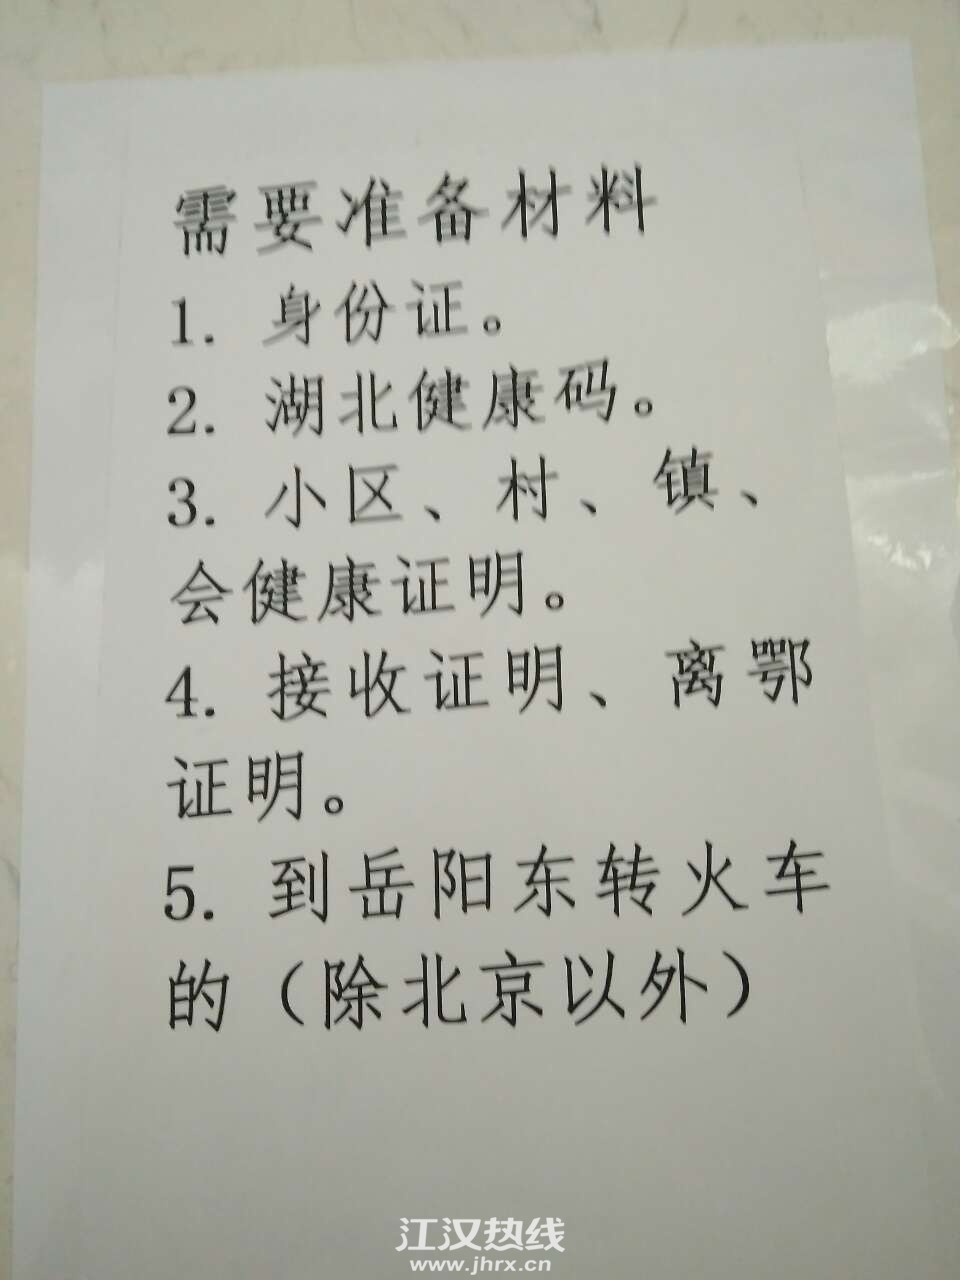 需要准备材料
1. 身份证。
2. 湖北健康码。
3. 小区、村、镇、
会健康证明。
4. 接收证明、离鄂
证明。
5. 到岳阳东转火车
的（除北京以外）
江汉热线
www.jhrx.cn